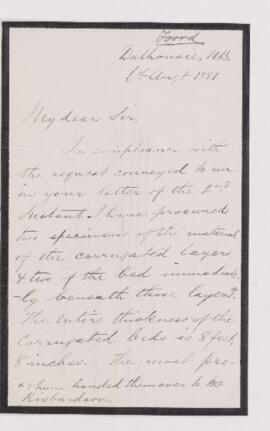 Foord
Dalhousie, N.B.
6th Augt 1881
My dear Sir,
In compliance with
the request conveyed to me
in your letter of the 2nd
Instant I have procured
two specimens of the material
of the corrugated layers,
& two of the bed immediate-
ly beneath those layers+.
The entire thickness of the
Corrugated beds is 8 feet,
8 inches. The most pro-
+ I have handed them over to Mr
Richardson.